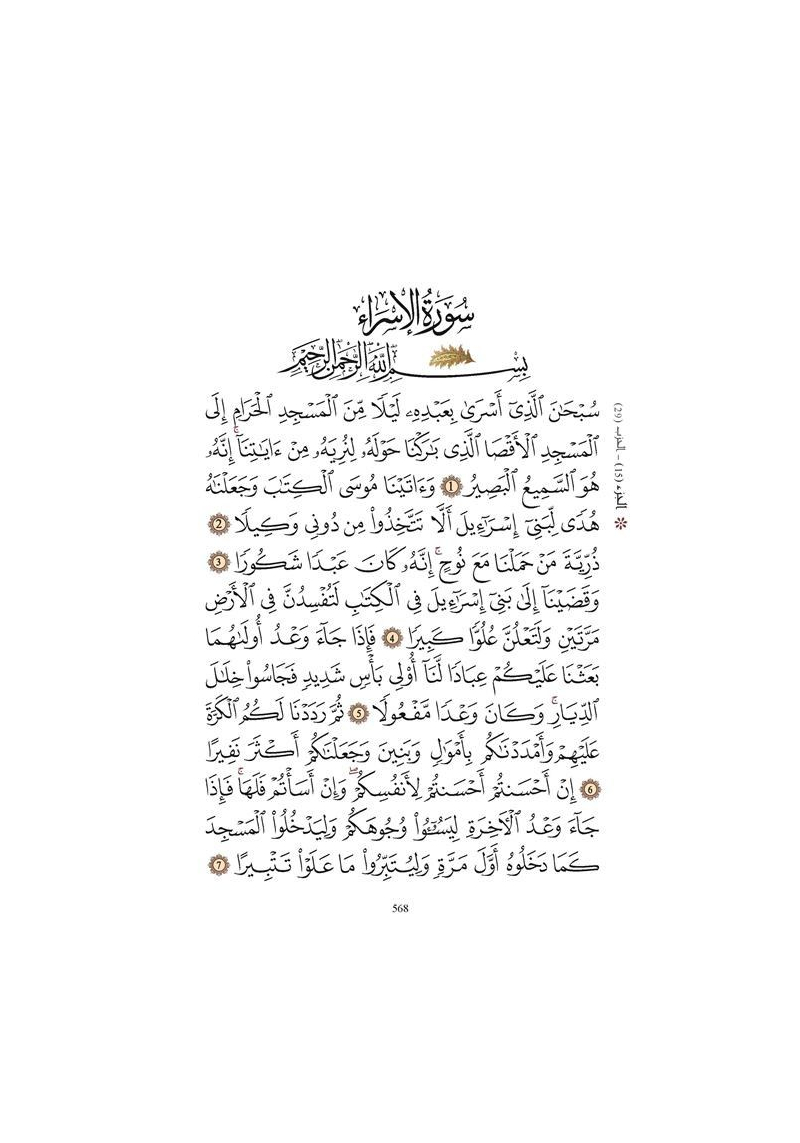 سُورَةُ الإِسْرَاء
بِسْمِ اللَّهِ الرَّحْمَٰنِ الرَّحِيمِ
سُبْحَٰنَ ٱلَّذِىٓ أَسْرَىٰ بِعَبْدِهِۦ لَيْلًا مِّنَ ٱلْمَسْجِدِ ٱلْحَرَامِ إِلَى
ٱلْمَسْجِدِ ٱلْأَقْصَا ٱلَّذِى بَٰرَكْنَا حَوْلَهُۥ لِنُرِيَهُۥ مِنْ ءَايَٰتِنَآ ۚ إِنَّهُۥ
هُوَ ٱلسَّمِيعُ ٱلْبَصِيرُ 1 وَءَاتَيْنَا مُوسَى ٱلْكِتَٰبَ وَجَعَلْنَٰهُ
هُدًى لِّبَنِىٓ إِسْرَٰٓءِيلَ أَلَّا تَتَّخِذُوا۟ مِن دُونِى وَكِيلًا 2
ذُرِّيَّةَ مَنْ حَمَلْنَا مَعَ نُوحٍ ۚ إِنَّهُۥ كَانَ عَبْدًا شَكُورًا 3
وَقَضَيْنَآ إِلَىٰ بَنِىٓ إِسْرَٰٓءِيلَ فِى ٱلْكِتَٰبِ لَتُفْسِدُنَّ فِى ٱلْأَرْضِ
مَرَّتَيْنِ وَلَتَعْلُنَّ عُلُوًّا كَبِيرًا 4 فَإِذَا جَآءَ وَعْدُ أُولَىٰهُمَا
بَعَثْنَا عَلَيْكُمْ عِبَادًا لَّنَآ أُو۟لِى بَأْسٍ شَدِيدٍ فَجَاسُوا۟ خِلَٰلَ
ٱلدِّيَارِ ۚ وَكَانَ وَعْدًا مَّفْعُولًا 5 ثُمَّ رَدَدْنَا لَكُمُ ٱلْكَرَّةَ
عَلَيْهِمْ وَأَمْدَدْنَٰكُم بِأَمْوَٰلٍ وَبَنِينَ وَجَعَلْنَٰكُمْ أَكْثَرَ نَفِيرًا
6 إِنْ أَحْسَنتُمْ أَحْسَنتُمْ لِأَنفُسِكُمْ ۖ وَإِنْ أَسَأْتُمْ فَلَهَا ۚ فَإِذَا
جَآءَ وَعْدُ ٱلْءَاخِرَةِ لِيَسُۥٓـُٔوا۟ وُجُوهَكُمْ وَلِيَدْخُلُوا۟ ٱلْمَسْجِدَ
كَمَا دَخَلُوهُ أَوَّلَ مَرَّةٍ وَلِيُتَبِّرُوا۟ مَا عَلَوْا۟ تَتْبِيرًا 7
الجزء (15) – الحزب (29)
568